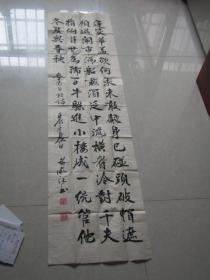 運交華蓋欲何求未敢翻身已碰頭破帽遮
顏過鬧市漏船載酒泛中流橫眉冷對千夫
指俯首甘為孺子牛躲進小樓成一統管他
冬夏與春秋 魯迅 詩 春日 書